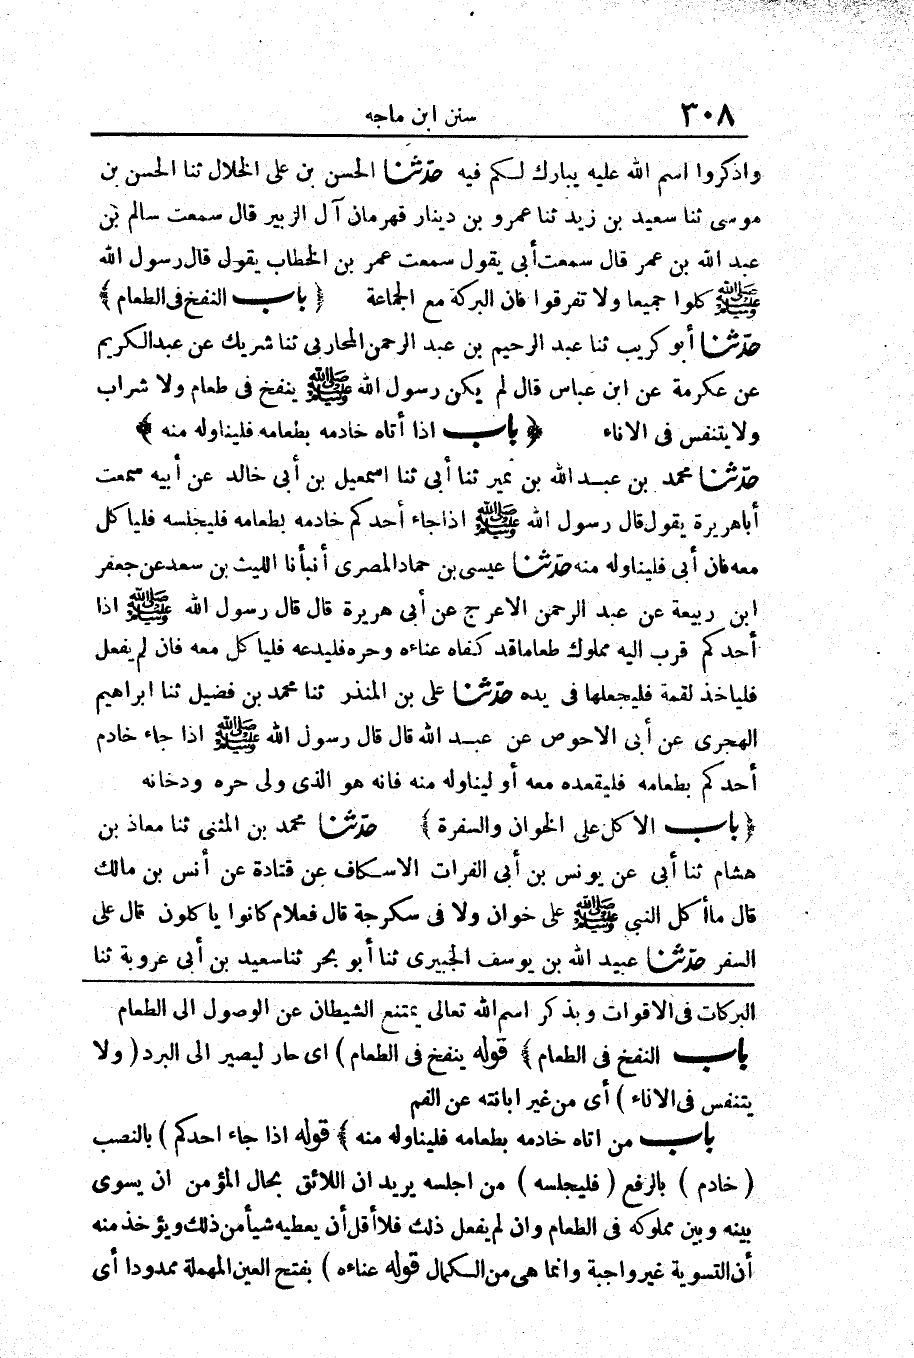 ٣٠٨ سنن ابن ماجه
واذكروا اسم الله عليه يبارك لكم فيه حدّثنا الحسن بن على الخلال ثنا الحسن بن
موسى ثنا سعيد بن زيد ثنا عمرو بن دينار قهرمان آل الزبير قال سمعت سالم بن
عبد الله بن عمر قال سمعت أبي يقول سمعت عمر بن الخطاب يقول قال رسول الله
ﷺ كلوا جميعا ولا تفرقوا فان البركة مع الجماعة ﴿ باب النفخ فى الطعام ﴾
حدّثنا أبو كريب ثنا عبد الرحيم بن عبد الرحمن المحاربى ثنا شريك عن عبدالكريم
عن عكرمة عن ابن عباس قال لم يكن رسول الله ﷺ ينفخ فى طعام ولا شراب
ولا يتنفس فى الاناء ﴿ باب اذا أتاه خادمه بطعامه فليناوله منه ﴾
حدّثنا محمد بن عبد الله بن نمير ثنا أبى ثنا اسمعيل بن أبى خالد عن أبيه سمعت
أباهريرة يقول قال رسول الله ﷺ اذا جاء أحدكم خادمه بطعامه فليجلسه فلياكل
معه فان أبى فليناوله منه حدّثنا عيسى بن حماد المصرى أنبأنا الليث بن سعد عن جعفر
ابن ربيعة عن عبد الرحمن الاعرج عن أبى هريرة قال قال رسول الله ﷺ اذا
أحدكم قرب اليه مملوك طعاما قد كفاه عناءه وحره فليدعه فلياكل معه فان لم يفعل
فلياخذ لقمة فليجعلها فى يده حدّثنا على بن المنذر ثنا محمد بن فضيل ثنا ابراهيم
الهجرى عن أبى الاحوص عن عبد الله قال قال رسول الله ﷺ اذا جاء خادم
أحدكم بطعامه فليقعده معه أو ليناوله منه فانه هو الذى ولى حره ودخانه
﴿ باب الاكل على الخوان والسفرة ﴾ حدّثنا محمد بن المثنى ثنا معاذ بن
هشام ثنا أبى عن يونس بن أبى الفرات الاسكاف عن قتادة عن أنس بن مالك
قال ماأكل النبي ﷺ على خوان ولا فى سكرجة قال فعلام كانوا ياكلون قال على
السفر حدّثنا عبيد الله بن يوسف الجبيرى ثنا أبو بحر ثنا سعيد بن أبى عروبة ثنا
البركات فى الاقوات وبذكر اسم الله تعالى يمتنع الشيطان عن الوصول الى الطعام
باب النفخ فى الطعام ﴾ قوله ينفخ فى الطعام ) اى حار ليصير الى البرد ( ولا
يتنفس فى الاناء ) أى من غير ابانته عن الفم
باب من اتاه خادمه بطعامه فليناوله منه ﴾ قوله اذا جاء احدكم ) بالنصب
( خادم ) بالرفع ( فليجلسه ) من اجلسه يريد ان اللائق بحال المؤمن ان يسوى
بينه وبين مملوكه فى الطعام وان لم يفعل ذلك فلا أقل أن يعطيه شيأ من ذلك ويؤخذ منه
أن التسوية غير واجبة وانما هى من الكمال قوله عناءه ) بفتح العين المهملة ممدودا أى